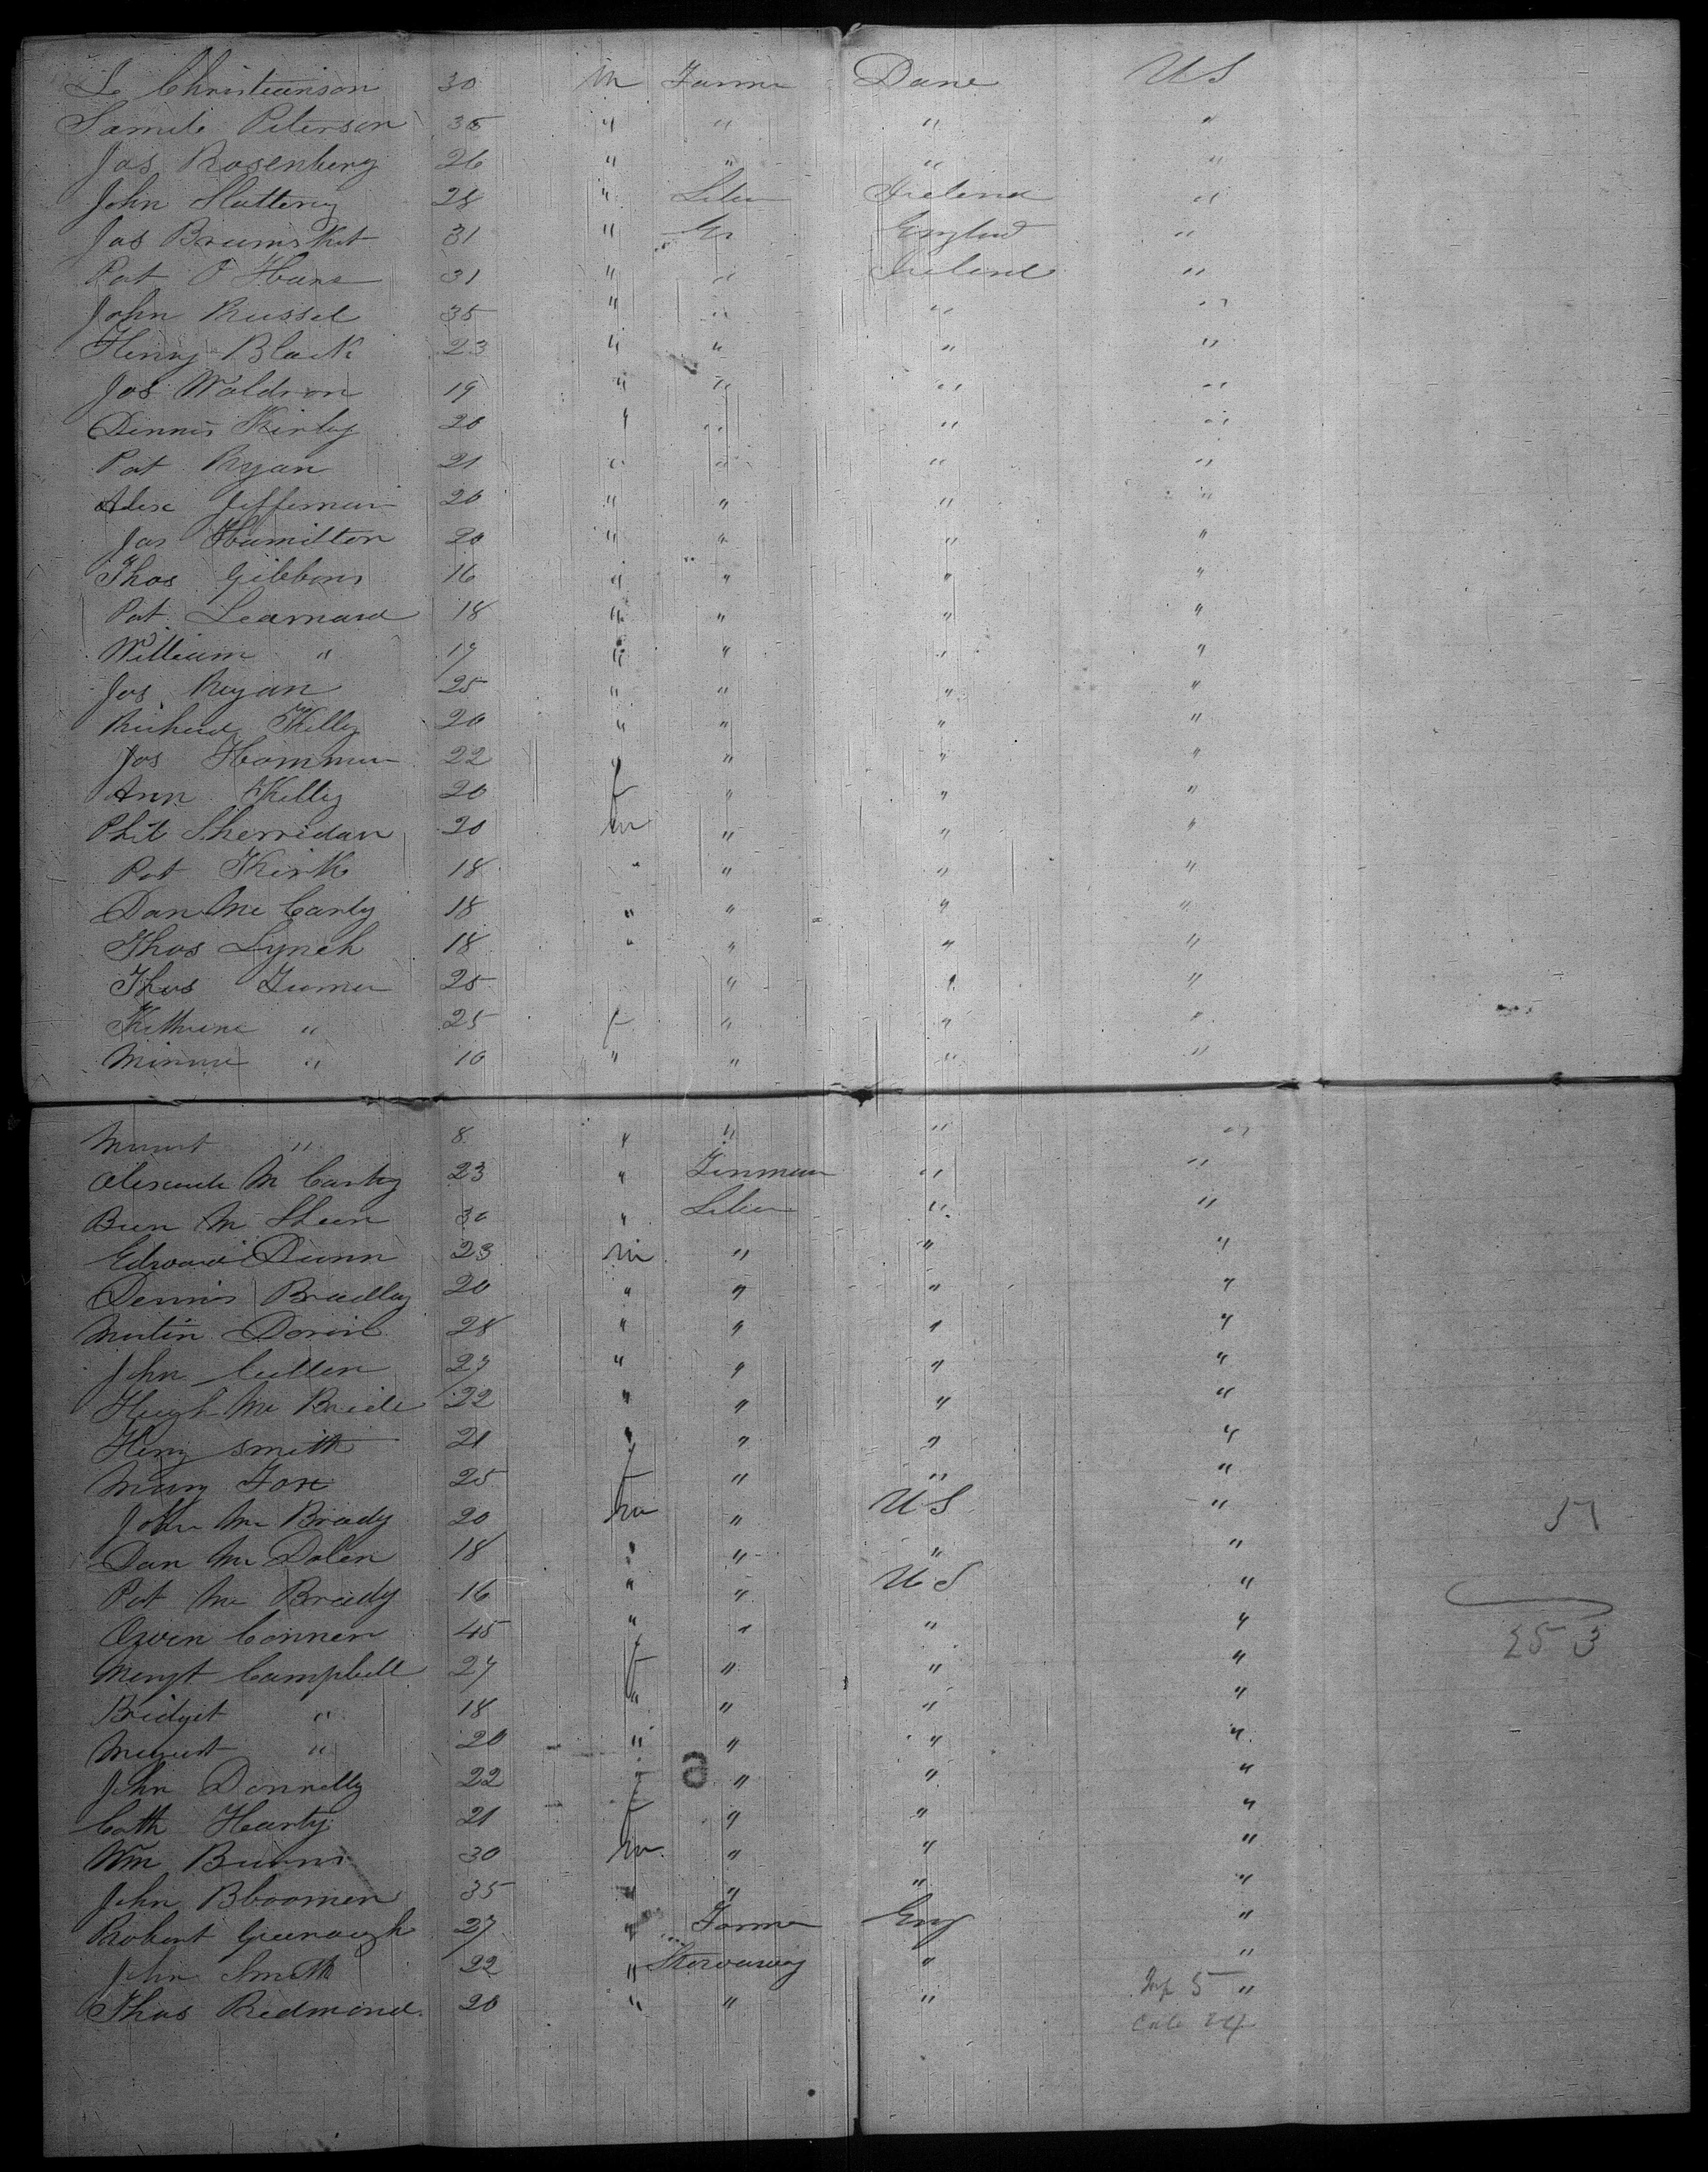 L Christianson 30 m Farmer Dane US
Samule Peterson 35 " " " "
Jas Rosenberg 26 " " " "
John Slattery 28 " Ireland "
Jas 31 " England "
Pat O Hare 31 " " Ireland "
John Russel 35 " " " "
Henry Black 23 " " " "
Jos Waldron 19 " " " "
Dennis Kirby 20 " " " "
Pat Ryan 21 " " " "
Alex 20 " " " "
Jas Hamilton 20 " " " "
Thos Gibbons 16 " " " "
Pat Learnard 18 " " " "
William " 17 " " " "
Jos Ryan 25 " " " "
Richard Kelly 20 " " " "
Jos 22 " " " "
Ann Kelly 20 f " " "
Phil Sherridan 20 m " " "
Pat Kirk 18 " " " "
Dan Mc Carty 18 " " " "
Thos Lynch 18 " " " "
Thos 25 " " "
" 25 f " " "
Minnie " 10 " " " "
" 8 " " " "
M Carty 23 " " "
30 " " "
Edward Dunn 23 m " " "
Dennis Bradley 20 " " " "
28 " " " "
John Cullen 27 " " " "
Hugh Mc Bride 22 " " " "
Heny Smith 21 " " " "
Mary Fox 25 f " " "
John Mc Brady 20 m " US "
Dan Mc Dolen 18 " " " "
Pat Mc Brady 16 " " US "
Owen Conner 45 " " " "
Margt Campbell 27 f " " "
Bridget " 18 " " " "
" 20 " " " "
John Donnelly 22 " " "
Cath Harty 21 f " " "
Wm Burns 30 m " " "
John Bloomer 35 " " " "
Robert Greenough 27 " Farmer Eng "
John Smith 22 " " "
Thos Redmond 20 " " " "
253